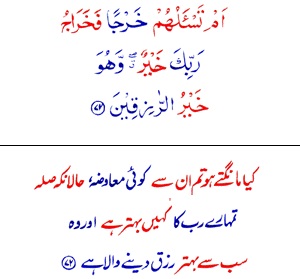 اَمْ تَسْـَٔلُهُمْ خَرْجًا فَخَرَاجُ
رَبِّكَ خَيْرٌ ۖۗ وَّهُوَ
خَيْرُ الرّٰزِقِيْنَ ﴿۷۲﴾
کیا مانگتے ہو تم ان سے کوئی معاوضہ؛ حالانکہ صلہ
تمہارے رب کا کہیں بہتر ہے اور وہ
سب سے بہتر رزق دینے والا ہے ﴿۷۲﴾